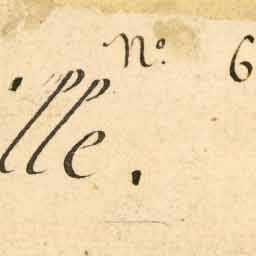 No. 6
ille.